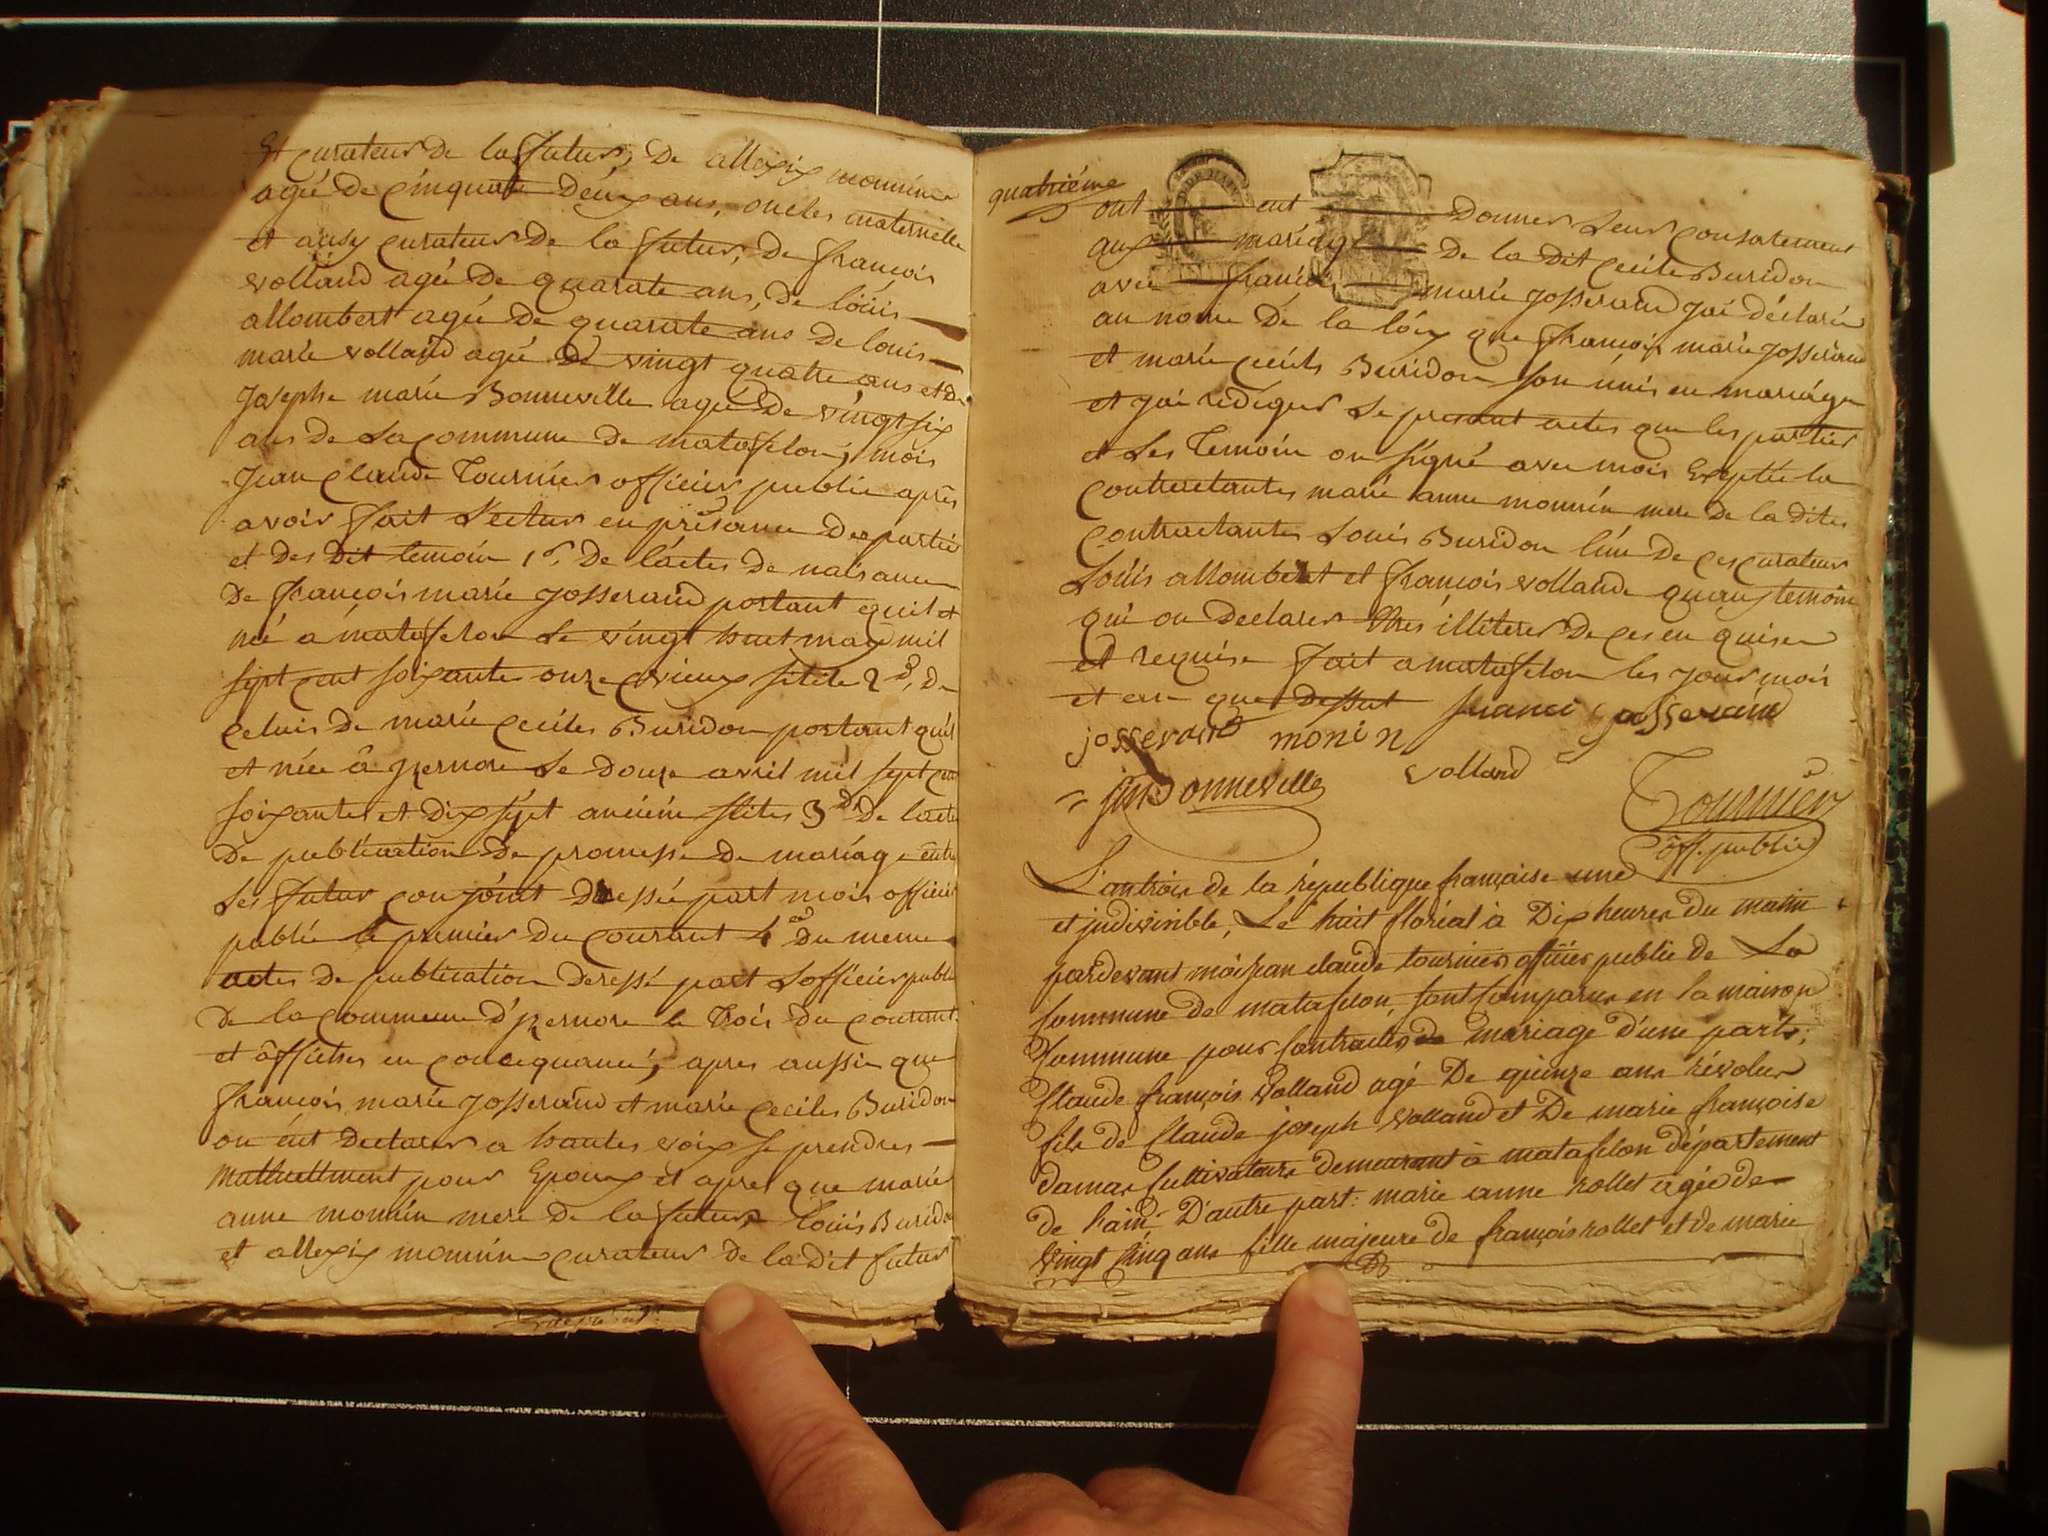 Et curateur de la future, de allexix monnin
agée de cinquate deux ans, oncles maternelle
et aussy curateur de la future, de françois
volland agée de quarate ans, de loüis
allombert agée de quarate ans de louis
marie volland agée de vingt quatre ans et de
Josephe marie Bonneville agée de vingt six
ans de la commune de matafelon, mois
Jean claude Tournier officier public après
avoir fait lecture en présance des partie
et des dit temoin 1º. de lactes de naisance
de françois marie josserand portant quil et
née a matafelon le vingt huit may mil
sept cent soixante onze vieux stile 2º, de
celuis de marie ceciles Buridon portant quil
et née â jzernore le douze avril mil sept cen
soixante et dix sept ancienne stiles 3º de lacte
de publication de promesse de mariage entre
les futur conjoint dressée part mois officier
public le premier du courant 4º du meme
actes de publication deressé part Lofficier public
de la commune d'jzernore le trois du courant
et affiches en concequance, apres aussie que
françois marie josserand et marie Ceciles Buridon
on éut declarer a hautes voix se prendres
mutuellment pour Epoux et apres que marie
anne monnin mere de la future Louis Buridon
et allexix monnin curateur de la dit futur
quatriéme
ont eut donner leur consatement
aux mariage de la dit Cecile Buridon
avec françois marie josserand jai déclarée
au nom de la löix que françois marie josserand
et marie cecils Buridon son unis en mariage
et jai rédiger le present actes que les parties
et les temoin on signé avec mois Exeptée la
contractantes marie anne monnin mere de la dites
contractantes Louis Buridon l'un de ces curateur
Loüis allombert et françois vollande quaux temoin
qui on declarer Etres illiteres de ces en quise
et requise fait a matafelon les jour mois
et an que dessut franci josserand
josserand monin
jm Bonneville volland
Tournier
off. public
L'antrois de la république française une
et indivisible, Le huit floréal à Dix heures du matin
pardevant moi jean claude tournier officier public de La
Commune de matafelon, sont Comparus en la maison
Commune pour Contracter mariage d'une part,
Claude françois Volland agé De quinze ans révolus
fils de Claude joseph volland et De marie françoise
damas Cultivateurs demeurant à matafelon département
de l'ain D'autre part: marie anne rollet agée de
Vingt Cinq ans fille majeure de françois rollet et de marie